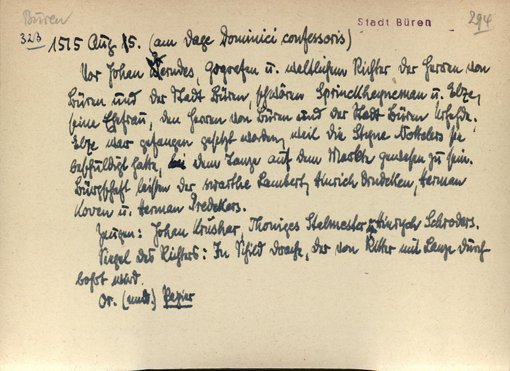 Büren
Stadt Büren
294
323 1515 Aug. 15. (am dage Dominici confessoris)
Vor Johan Werndes, Gografen u. weltlichem Richter der Herren von
Büren und der Stadt Büren, schwören Sprinckheyneman u. Ilze,
seine Ehefrau, den Herren von Büren und der Stadt Büren Urfehde.
Ilze war gefangen gesetzt worden, weil die Styne Nottelers sie
beschuldigt hatte, bei dem Tanze auf dem Markte gewesen zu sein.
Bürgschaft leisten der swarthe Lambert, Hinrich Drudeken, Herman
Koven u. Herman Predekers.
Zeugen: Johan Krushar, Thoniges Stelmester, Hinrich Schroders.
Siegel des Richters: Im Schild Drache, der von Ritter mit Lanze durch
bohrt wird.
Or. (mnd.) Papier